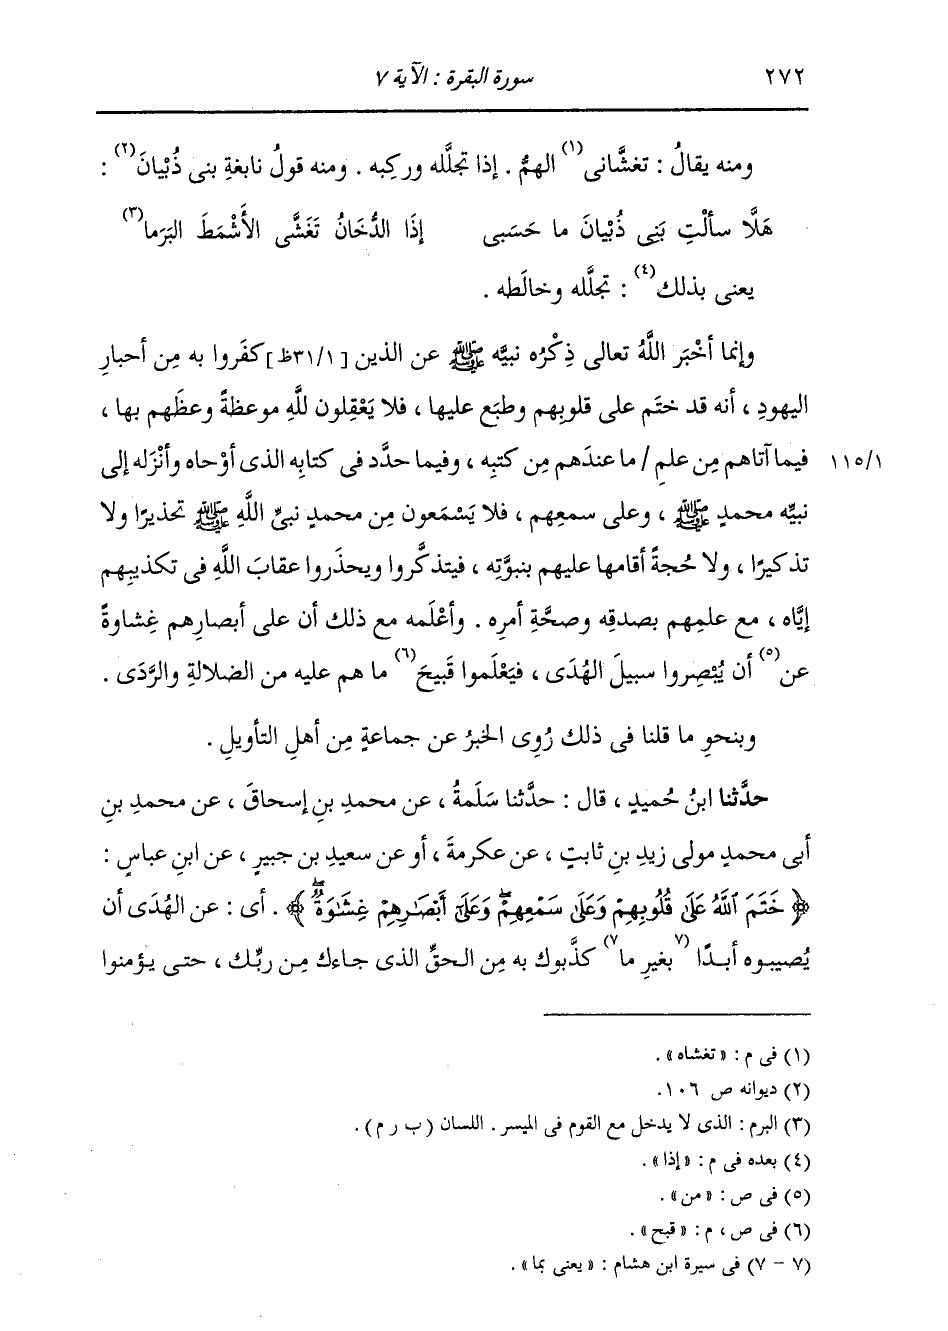 ٢٧٢ سورة البقرة : الآية ٧
ومنه يقالُ : تغشَّانى(١) الهمُّ . إذا تجلَّله وركِبه . ومنه قولُ نابغةِ بنى ذُبْيانَ(٢) :
هَلَّا سألْتِ بَنِى ذُبْيانَ ما حَسَبى إذَا الدُّخَانُ تَغَشَّى الأَشْمَطَ البَرَما(٣)
يعنى بذلك(٤) : تجلَّله وخالَطه .
وإنما أخْبَر اللَّهُ تعالى ذِكْرُه نبيَّه ﷺ عن الذين [٣١/١ظ] كفَروا به مِن أحبارِ
اليهودِ ، أنه قد ختَم على قلوبِهم وطبَع عليها ، فلا يَعْقِلون للَّهِ موعظةً وعظَهم بها ،
١١٥/١ فيما آتاهم مِن علمِ / ما عندَهم مِن كتبِه ، وفيما حدَّد فى كتابِه الذى أوْحاه وأنْزَله إلى
نبيِّه محمدٍ ﷺ ، وعلى سمعِهم ، فلا يَسْمَعون مِن محمدٍ نبىِّ اللَّهِ ﷺ تحذيرًا ولا
تذكيرًا ، ولا حُجةً أقامها عليهم بنبوَّتِه ، فيتذكَّروا ويحذَروا عقابَ اللَّهِ فى تكذيبِهم
إيَّاه ، مع علمِهم بصدقِه وصحَّةِ أمرِه . وأعْلَمه مع ذلك أن على أبصارِهم غِشاوةً
عن(٥) أن يُبْصِروا سبيلَ الهُدَى ، فيَعْلَموا قَبيحَ(٦) ما هم عليه من الضلالةِ والرَّدَى .
وبنحوِ ما قلنا فى ذلك رُوِى الخبرُ عن جماعةٍ مِن أهلِ التأويلِ .
حدَّثنا ابنُ حُميدٍ ، قال : حدَّثنا سَلَمةُ ، عن محمدِ بنِ إسحاقَ ، عن محمدِ بنِ
أبى محمدٍ مولى زيدِ بنِ ثابتٍ ، عن عكرمةَ ، أو عن سعيدِ بنِ جبيرٍ ، عن ابنِ عباسٍ :
﴿ خَتَمَ ٱللَّهُ عَلَىٰ قُلُوبِهِمْ وَعَلَىٰ سَمْعِهِمْۖ وَعَلَىٰٓ أَبْصَٰرِهِمْ غِشَٰوَةٌۖ ﴾ . أى : عن الهُدَى أن
يُصيبوه أبدًا (٧بغيرِ ما٧) كذَّبوك به مِن الحقِّ الذى جاءك مِن ربِّك ، حتى يؤمنوا
(١) فى م : « تغشاه » .
(٢) ديوانه ص ١٠٦.
(٣) البرم : الذى لا يدخل مع القوم فى الميسر . اللسان ( ب ر م ) .
(٤) بعده فى م : « إذا » .
(٥) فى ص : « من » .
(٦) فى ص ، م : « قبح » .
(٧ - ٧) فى سيرة ابن هشام : « يعنى بما » .